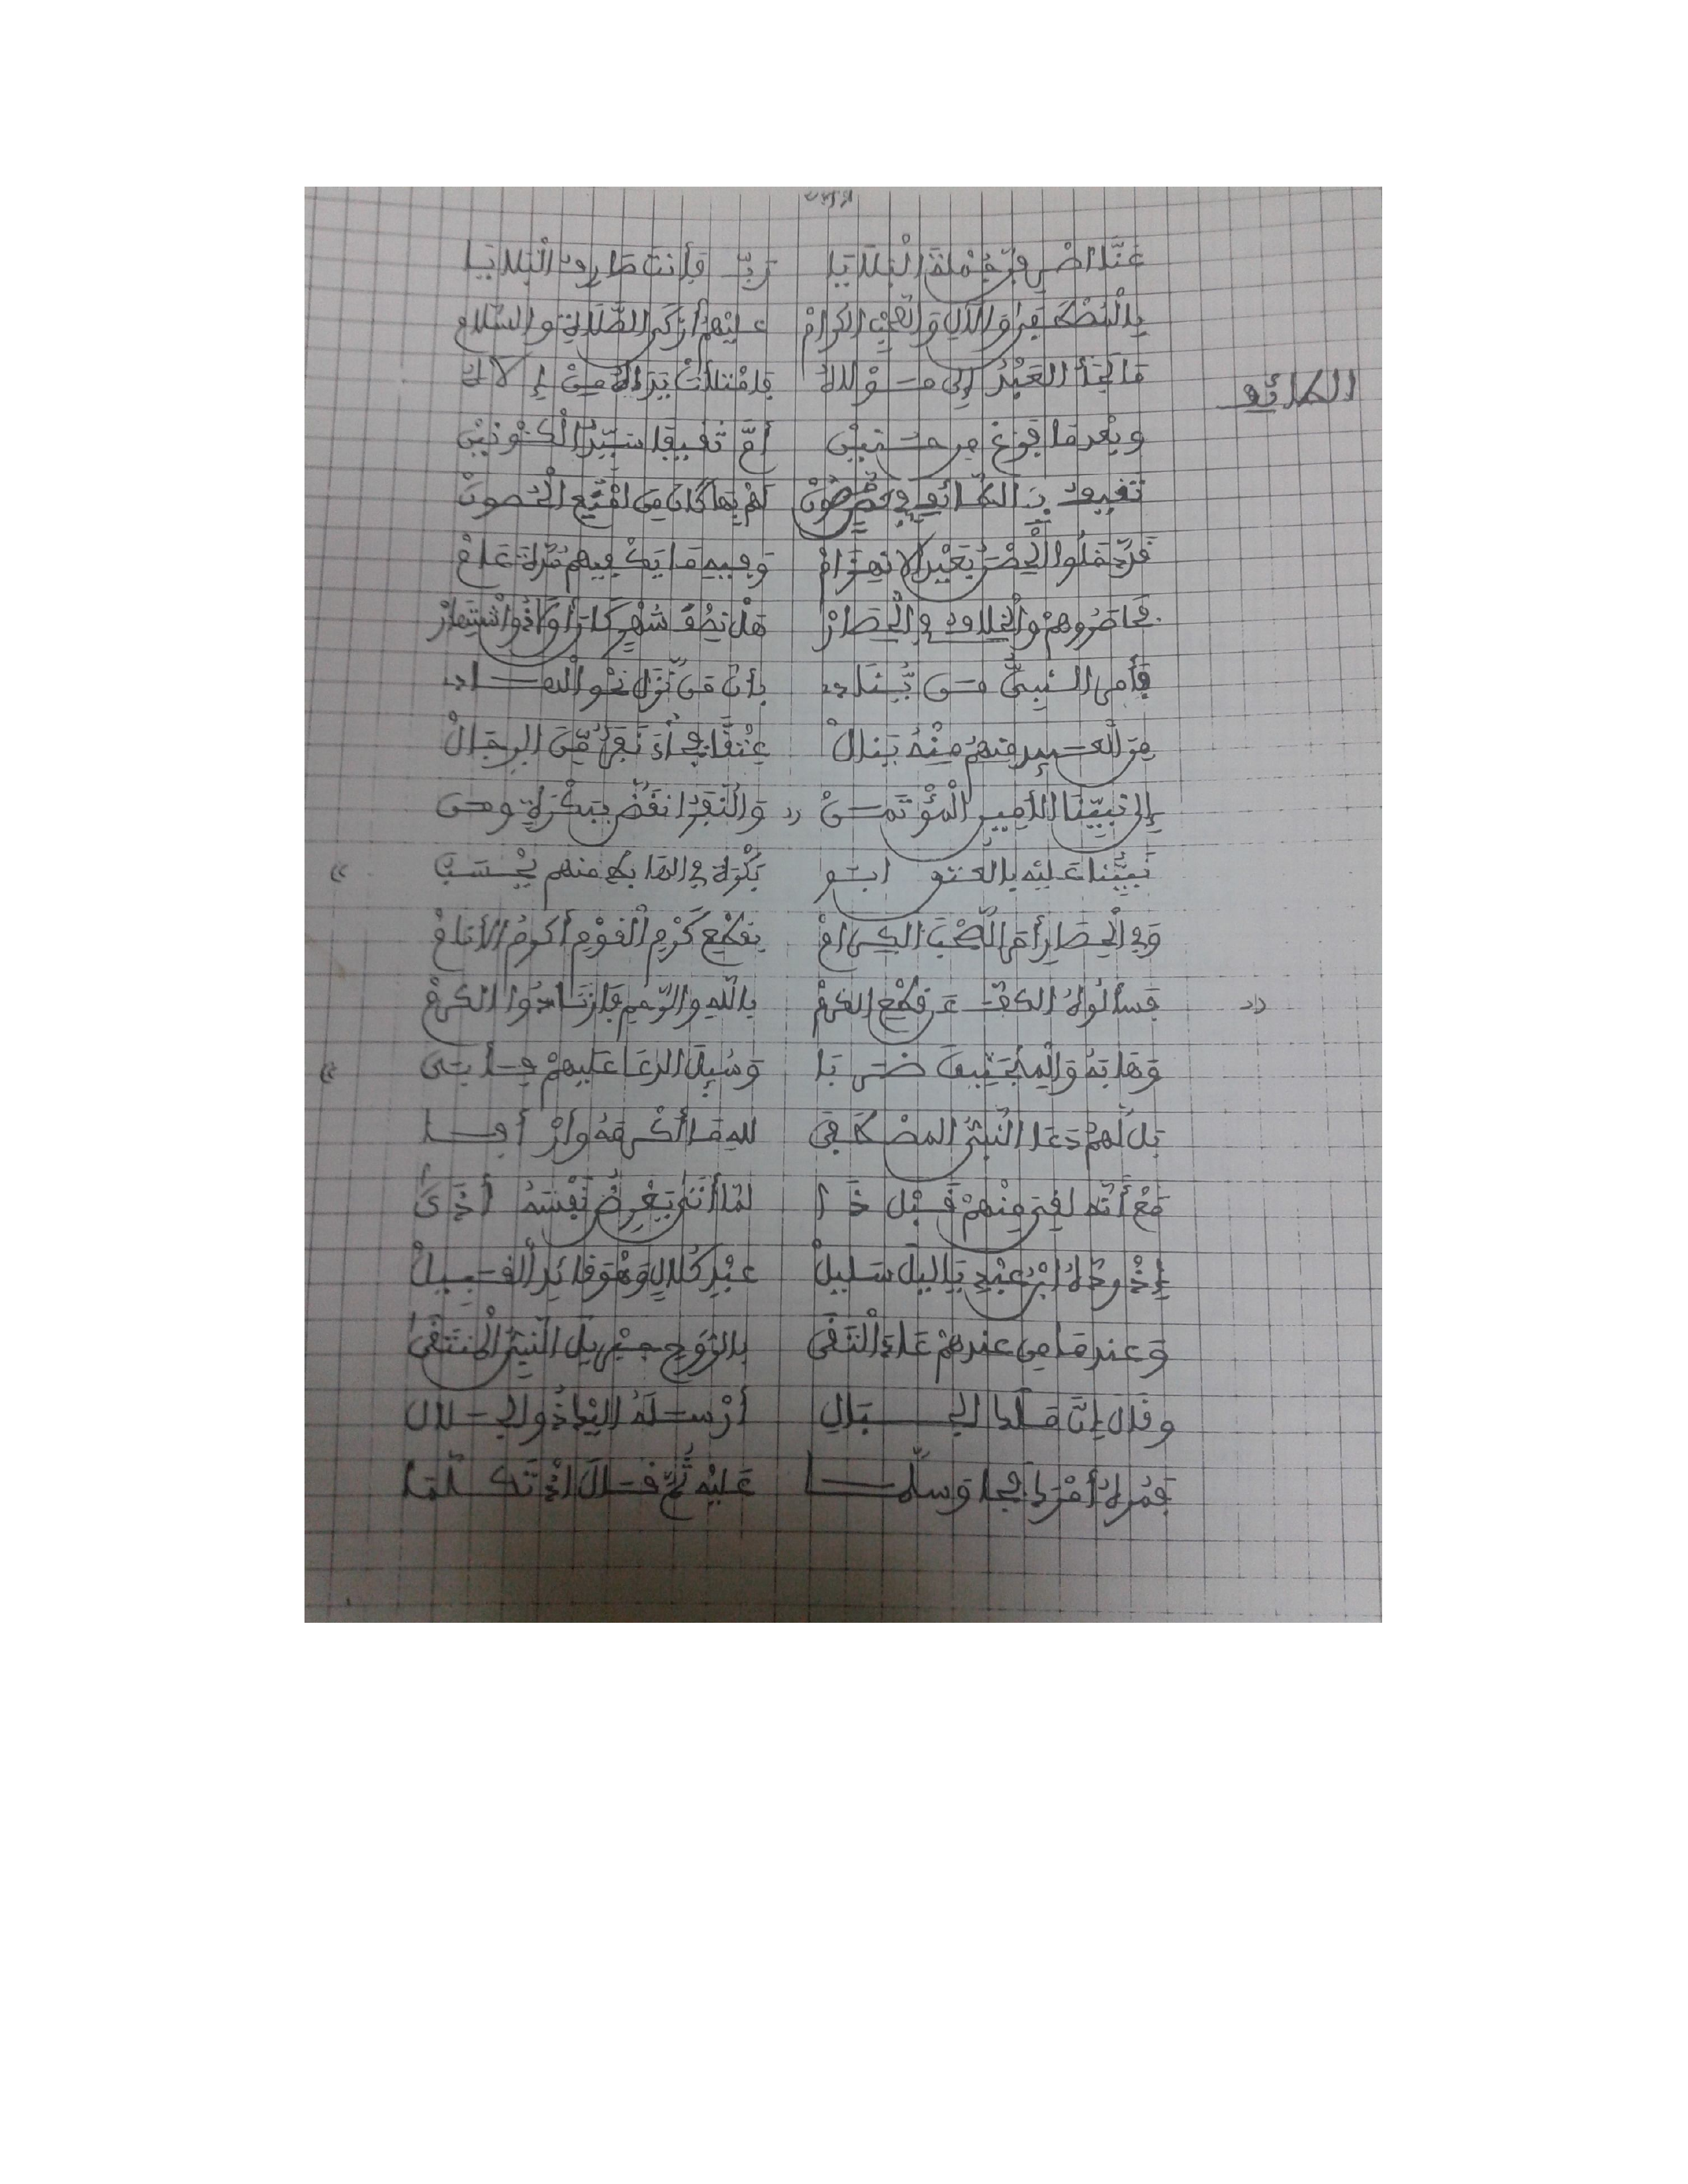 عَنَّا اصْرِفَنْ جُمْلَةَ الْبَلَايَا رَبِّ فَأَنْتَ صَارِفُ الْبَلَايَا
بِالْمُصْطَفَى وَالْآلِ وَالصَّحْبِ الْكِرَامْ عَلَيْهِمْ أَزْكَى الصَّلَاةِ وَالسَّلَامْ
مَا لَجَأَ الْعَبْدُ إِلَى مَوْلَاهُ فَامْتَلَأَتْ يَدَاهُ مِنْ إِلَاهُ
الطائف
وبعْدمَا فَرَغ من حنَيْنِ أَمَّ ثَقيفا سَيِّدُ الْكَوْنَيْنِ
ثقيف بالطائف في حُصُونْ لهمْ بها كان مِن امْنَعِ الْحُصونْ
قَدْ حَمَلُوا الْحِصْنَ بِغَيْرِ الانهِزَامْ وَفيهِ مَا يَكْفيهم مُدَّةَ عَامْ
فحَاصَرُوهمْ والْخِلَاف في الْحِصَارْ هَلْ نِصْفُ شَهْرٍ كَانَ أَوْ ذُو اشْتِهَارْ
فأَمر النبيُّ مَن يُنَادِ بأنَّ مَن نَّزَلَ نَحْو الْهَادِ
مِنَ الْعَبيد منهمُ مِنْهُ يَنالْ عِتْقًا فجَاءَ نَفَرٌ مِّنَ الرِجَالْ
إلى نبيِّنَا الأمينِ الْمُؤْتَمَنْ وَالنَّفَرُ انقَضَّ ببَكْرَةٍ ومَن
نَبيُّنا عَلَيْه بالعتق ابو بَكْرَةَ في الصَّحابة منهم يُحْسَبُ
وَفي الْحِصَارِ أمَرَ الصَّحْبَ الكِرامْ بِقَطْعِ كَرْمِ الْقَوْمِ أكرمُ الأنَامْ
فسألُوهُ الكفَّ عَن قطْعِ الكرمْ باللهِ والرَّحِمِ فازْدَادُوا الكرمْ
وَهَابَهُ وَالْمَنْجَنيقَ ضَرَبَا وَسُئِلَ الدعَا عَلَيهمْ فأبَى
بَل لَهمْ دَعَا النَّبيُّ المصْطَفَى للهِ مَا أكْرمَهُ وأرْأفَا
مَعْ أنَّه لَقِيَ مِنْهمْ قَبْلَ ذَا لمَّا أتَى يَعْرِضُ نَفْسَهُ أَذَى
إذْ رَدَّهُ ابْنُ عَبْدِ يَاليلَ سَليلْ عبْدِ كُلَالٍ وَهْوَ قائدُ الْقَبيلْ
وَعندمَا مِن عندهمْ عَادَ الْتَقَى بالرُّوحِ جبْريلَ النَّبيُّ الْمُنتَقَى
وقَالَ إنَّ مَلَكَ الْجبَالِ أرْسَلَهُ إلَيْكَ ذُو الْجَلَالِ
فمُرهُ أَمْرَكَ فجا وَسلَّمَا عَلَيْهِ ثمَّ قَالَ إذْ تَكَلَّمَا